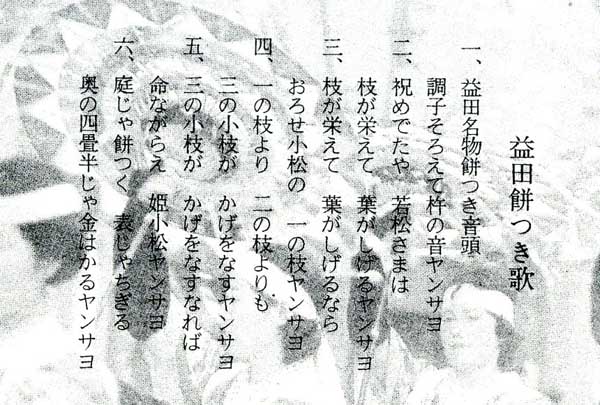 益田餅つき歌
一、益田名物餅つき音頭
調子そろえて杵の音ヤンサヨ
二、祝めでたや 若松さまは
枝が栄えて 葉がしげるヤンサヨ
三、枝が栄えて 葉がしげるなら
おろせ小松の 一の枝ヤンサヨ
四、一の枝より 二の枝よりも
三の小枝が かげをなすヤンサヨ
五、三の小枝が かげをなすなれば
命ながらえ 姫小松ヤンサヨ
六、庭じゃ餅つく 表じゃちぎる
奥の四畳半じゃ金はかるヤンサヨ